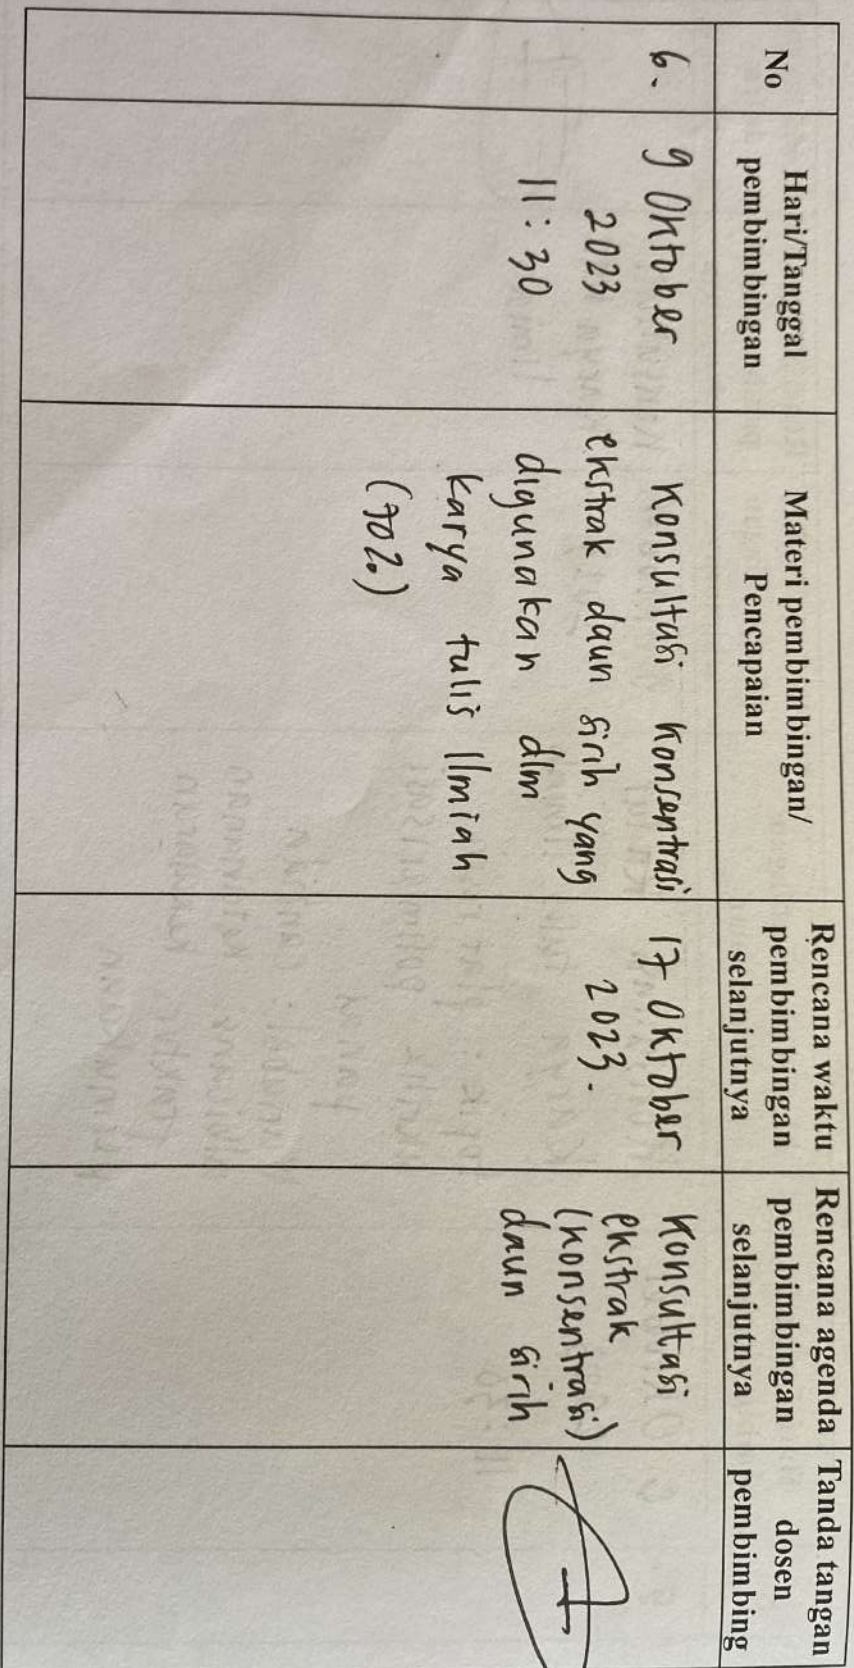 No
Hari/Tanggal
pembimbingan
Materi pembimbingan/
Pencapaian
Rencana waktu
pembimbingan
selanjutnya
Rencana agenda
pembimbingan
selanjutnya
Tanda tangan
dosen
pembimbing
6.
9 Oktober
2023
11:30
Konsultasi Konsentrasi
ekstrak daun sirih yang
digunakan dlm
karya tulis Ilmiah
(70%)
17 Oktober
2023.
Konsultasi
ekstrak
(konsentrasi)
daun sirih